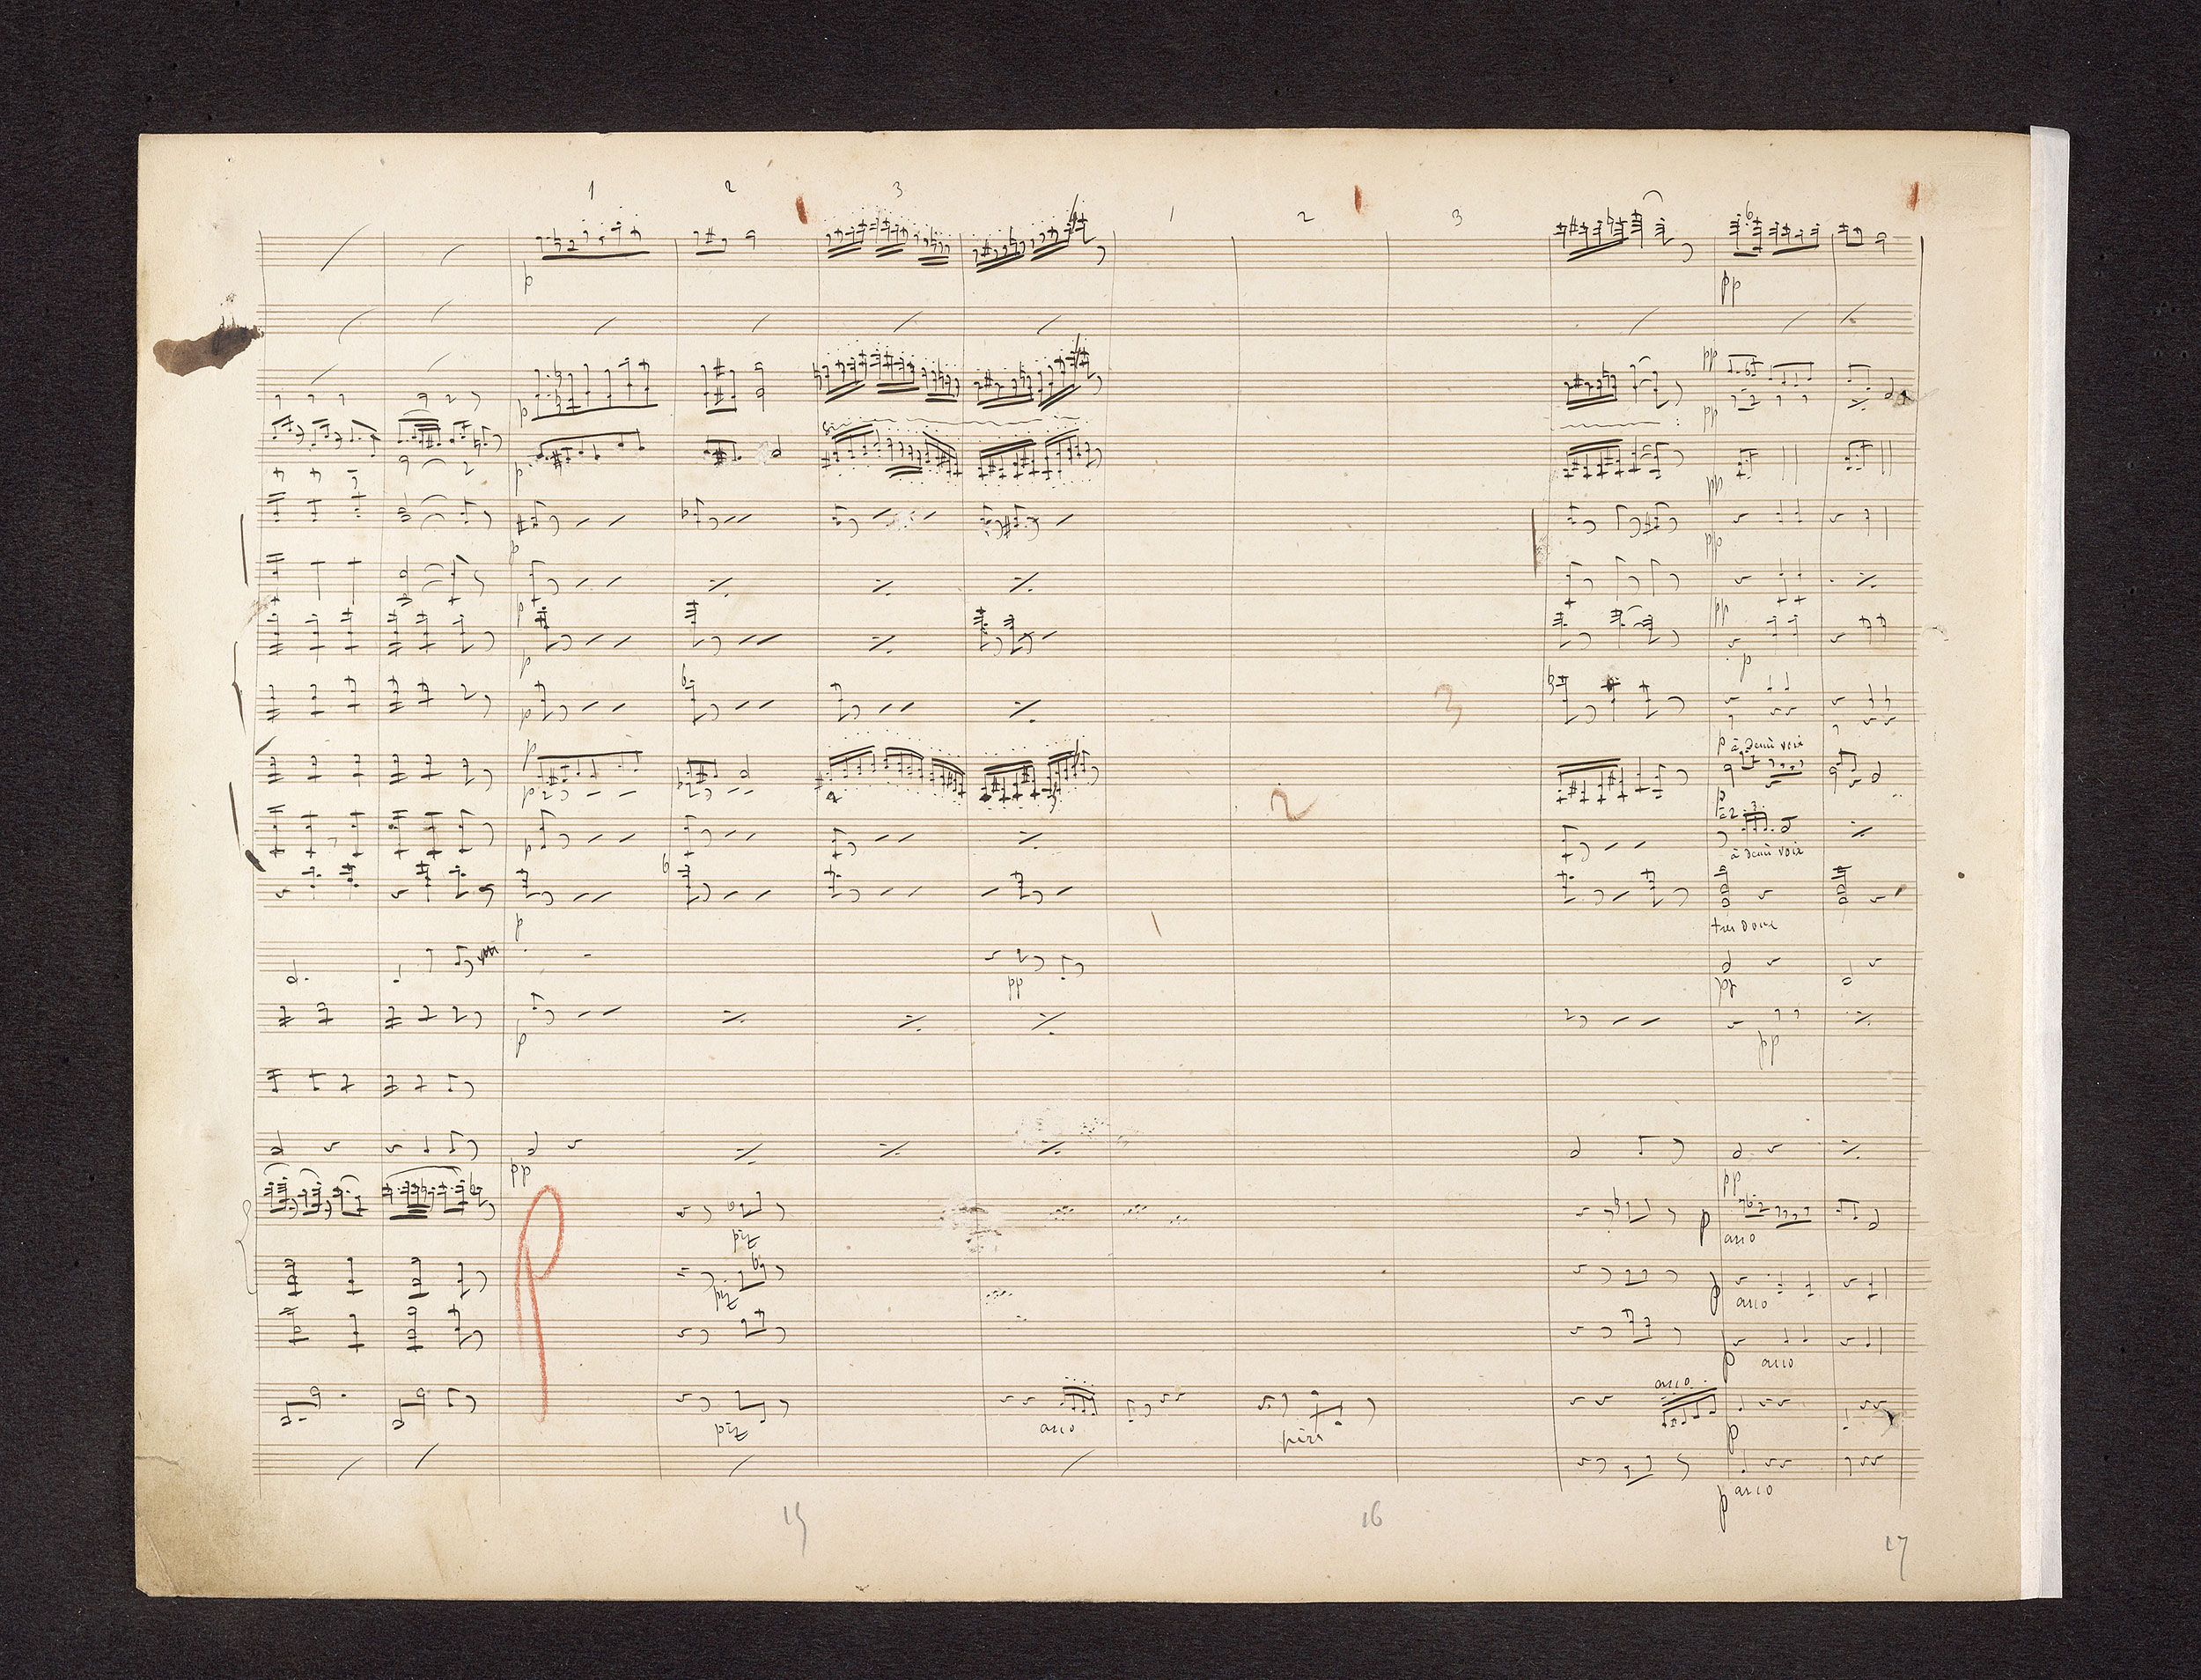 1 2 3 1 2 3
6
p
pp
pp
p
pp
p
pp
p
pp
p
pp
p
p
3
p
p à demi voix
p
2
p
à 2 3
à demi voix
p
très doux
pp
pp
p
pp
pp
pp
P
piz
p
arco
piz
p
arco
p
arco
arco
piz
arco
pizz
p
p
arco
15 16
17